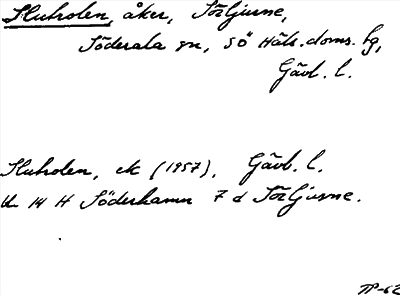 Slutrolen, åker, Sörljusne,
Söderala sn, SÖ Häls. doms. hg,
Gävl. l.
Slutrolen, ek (1957), Gävl. l.
14 H Söderhamn 7 d Sörljusne.
TP-62